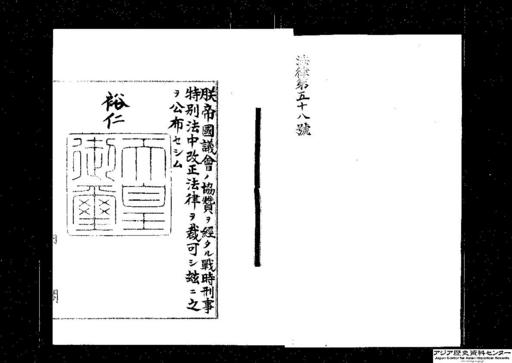 法律第五十八號
朕帝國議會ノ協贊ヲ經タル戰時刑事
特別法中改正法律ヲ裁可シ玆ニ之
ヲ公布セシム
裕仁
天皇
御璽
アジア歴史資料センター
Japan Center for Asian Historical Records